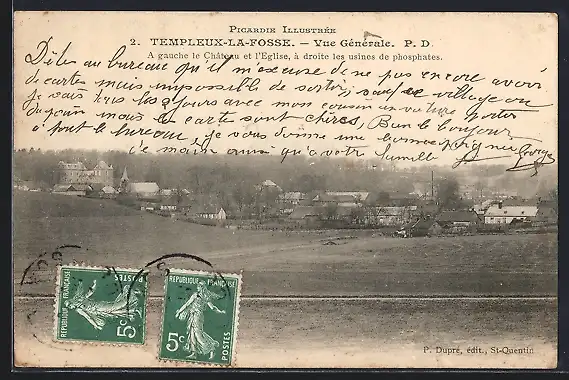 PICARDIE ILLUSTRÉE
2. TEMPLEUX-LA-FOSSE. — Vue Générale. P. D.
A gauche le Château et l'Eglise, à droite les usines de phosphates.
Dites au bureau qu'il m'excuse de ne pas encore avoir
de cartes mais impossible de sortir, sauf ce village ou
je vais tous les jours avec mon cousin en voiture porter
du pain mais les cartes sont chères, Bien le bonjour
à tout le bureau, je vous donne une bonne poignée
de main ainsi qu'à votre famille Georges
REPUBLIQUE FRANÇAISE
POSTES
5c
REPUBLIQUE FRANÇAISE
5c
POSTES
P. Dupré, édit., St-Quentin